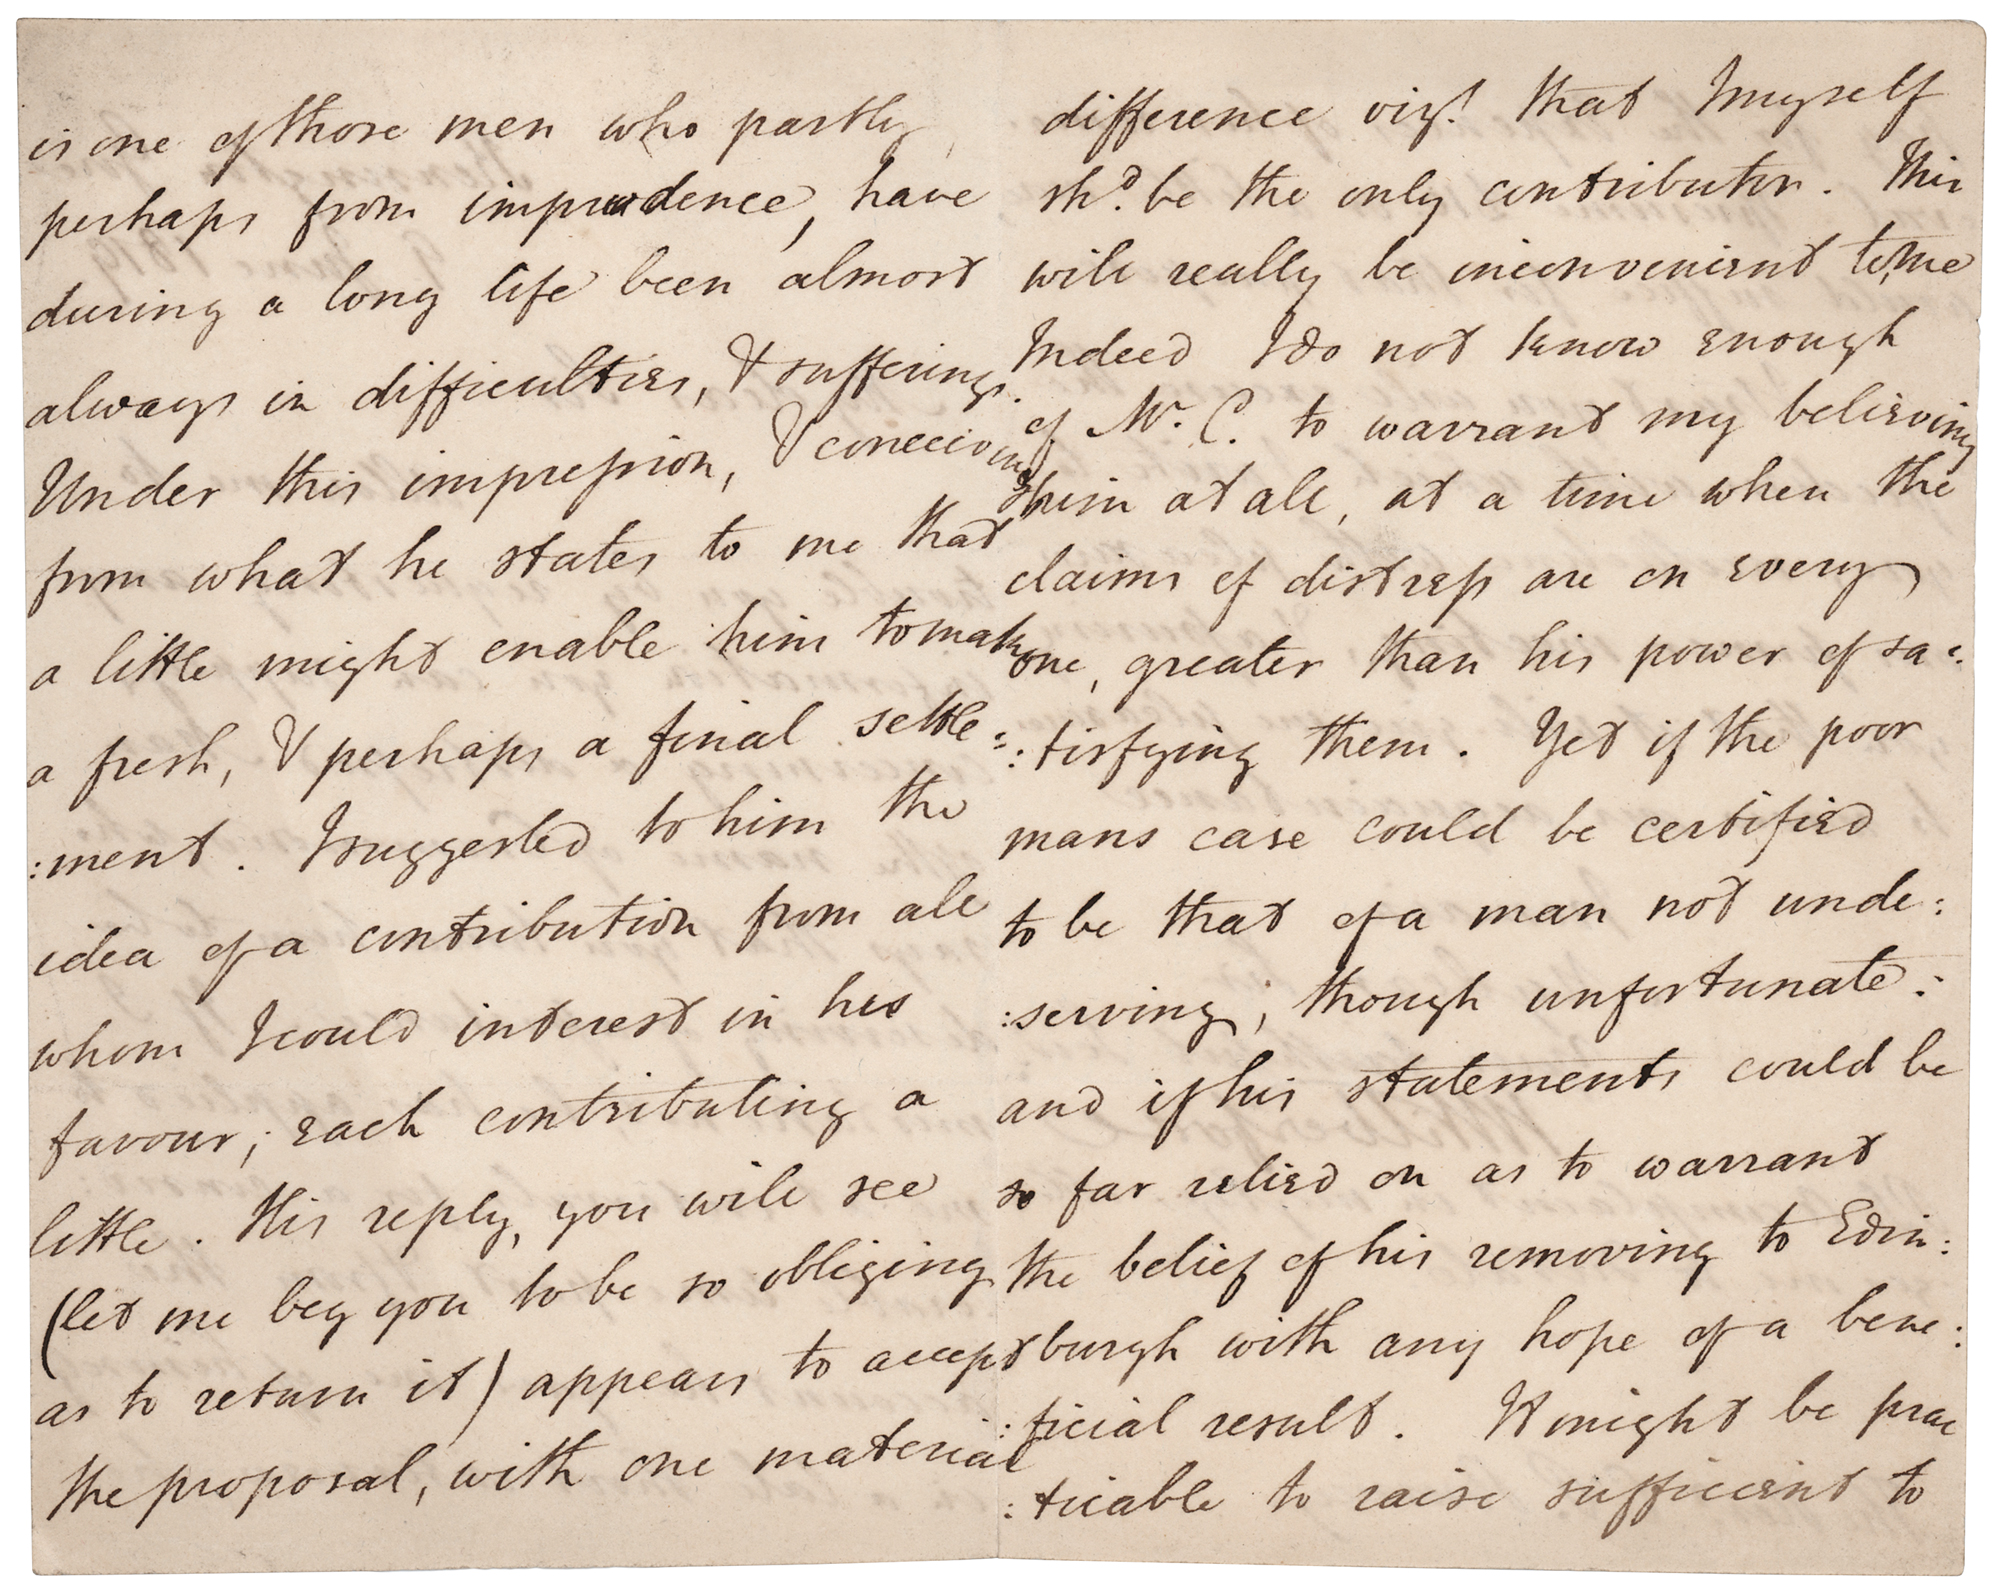 is one of those men who partly,
perhaps from imprudence, have
during a long life been almost
always in difficulties, & sufferings.
Under this impression, & conceiving
from what he states to me that
a little might enable him to make
a fresh, & perhaps a final settle=
:ment. I suggested to him the
idea of a contribution from all
whom I could interest in his
favour; each contributing a
little. His reply, you will see
(let me beg you to be so obliging
as to return it) appears to accept
the proposal, with one material
difference viz! that I myself
shd. be the only contributor. This
will really be inconvenient to me
Indeed I do not know enough
of Mr. C. to warrant my believing
him at all, at a time when the
claims of distress are on every
one, greater than his power of sa=
:tisfying them. Yet if the poor
mans case could be certified
to be that of a man not unde:
:serving, though unfortunate:
and if his statements could be
so far relied on as to warrant
the belief of his removing to Edin:
burgh with any hope of a bene:
:ficial result. It might be prac
:ticable to raise sufficient to